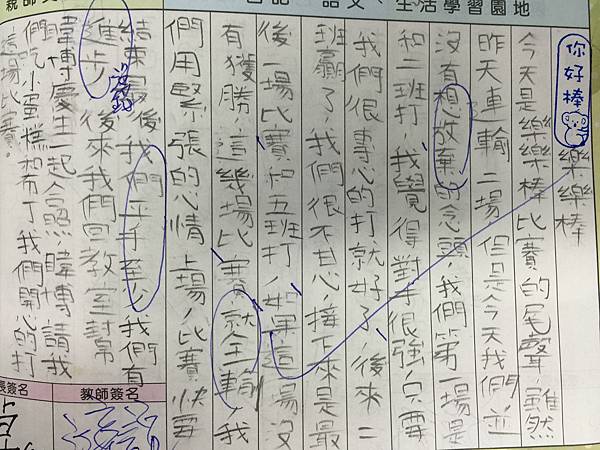 親師交
日記、語文、生活學習園地
你好棒
樂樂棒
今天是樂樂棒比賽的尾聲雖然
昨天連輸二場但是今天我們並
沒有想放棄的念頭,我們第一場是
和二班打我覺得對手很強只要
我們很專心的打就好了,後來二
班贏了,我們很不甘心,接下來是最
後一場比賽和五班打,如果這一場沒
有獲勝這幾場比賽就全輸,我
們用緊張的心情上場,比賽快要
結束最後我們平手至少我們有
進步
後來我們回教室幫
暐博慶生一起合照,暐博請我
們吃小蛋糕和布丁我們開心的打
這場比賽。
教師簽名
長簽名